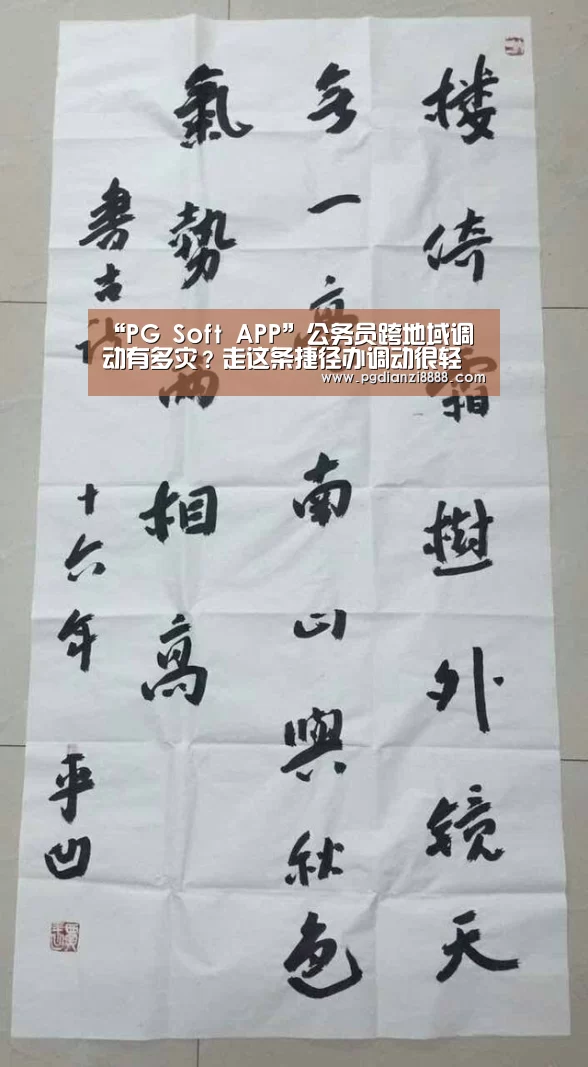 楼倚霜樹外镜天
无一毫南山與秋色
氣勢兩相高
書古詩 十六年 平凹
“PG Soft APP”公务员跨地域调
动有多灾？走这条捷径办调动很轻
www.pgdianzi8888.com